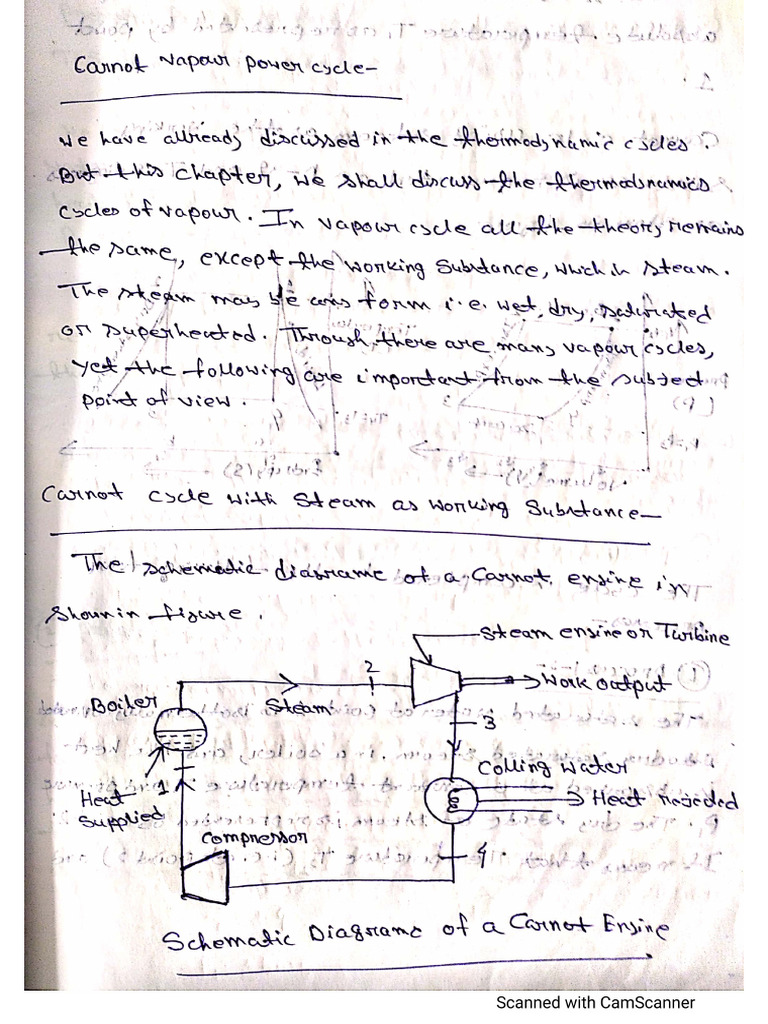 Carnot Vapour power cycle-
We have already discussed in the thermodynamic cycles.
But this chapter, we shall discuss the thermodynamics
cycles of vapour. In vapour cycle all the theory remains
the same, except the working substance, which is steam.
The steam may be any form i.e. wet, dry, saturated
or superheated. Through there are many vapour cycles,
yet the following are important from the subject
point of view.
Carnot cycle with steam as working Substance-
The schematic diagrame of a Carnot engine in
shown in figure.
Steam engine or Turbine
2
Boiler
Steam
Work output
3
Colling water
1
Heat
Supplied
Heat Rejected
Compressor
4
Schematic Diagrame of a Carnot Engine
Scanned with CamScanner